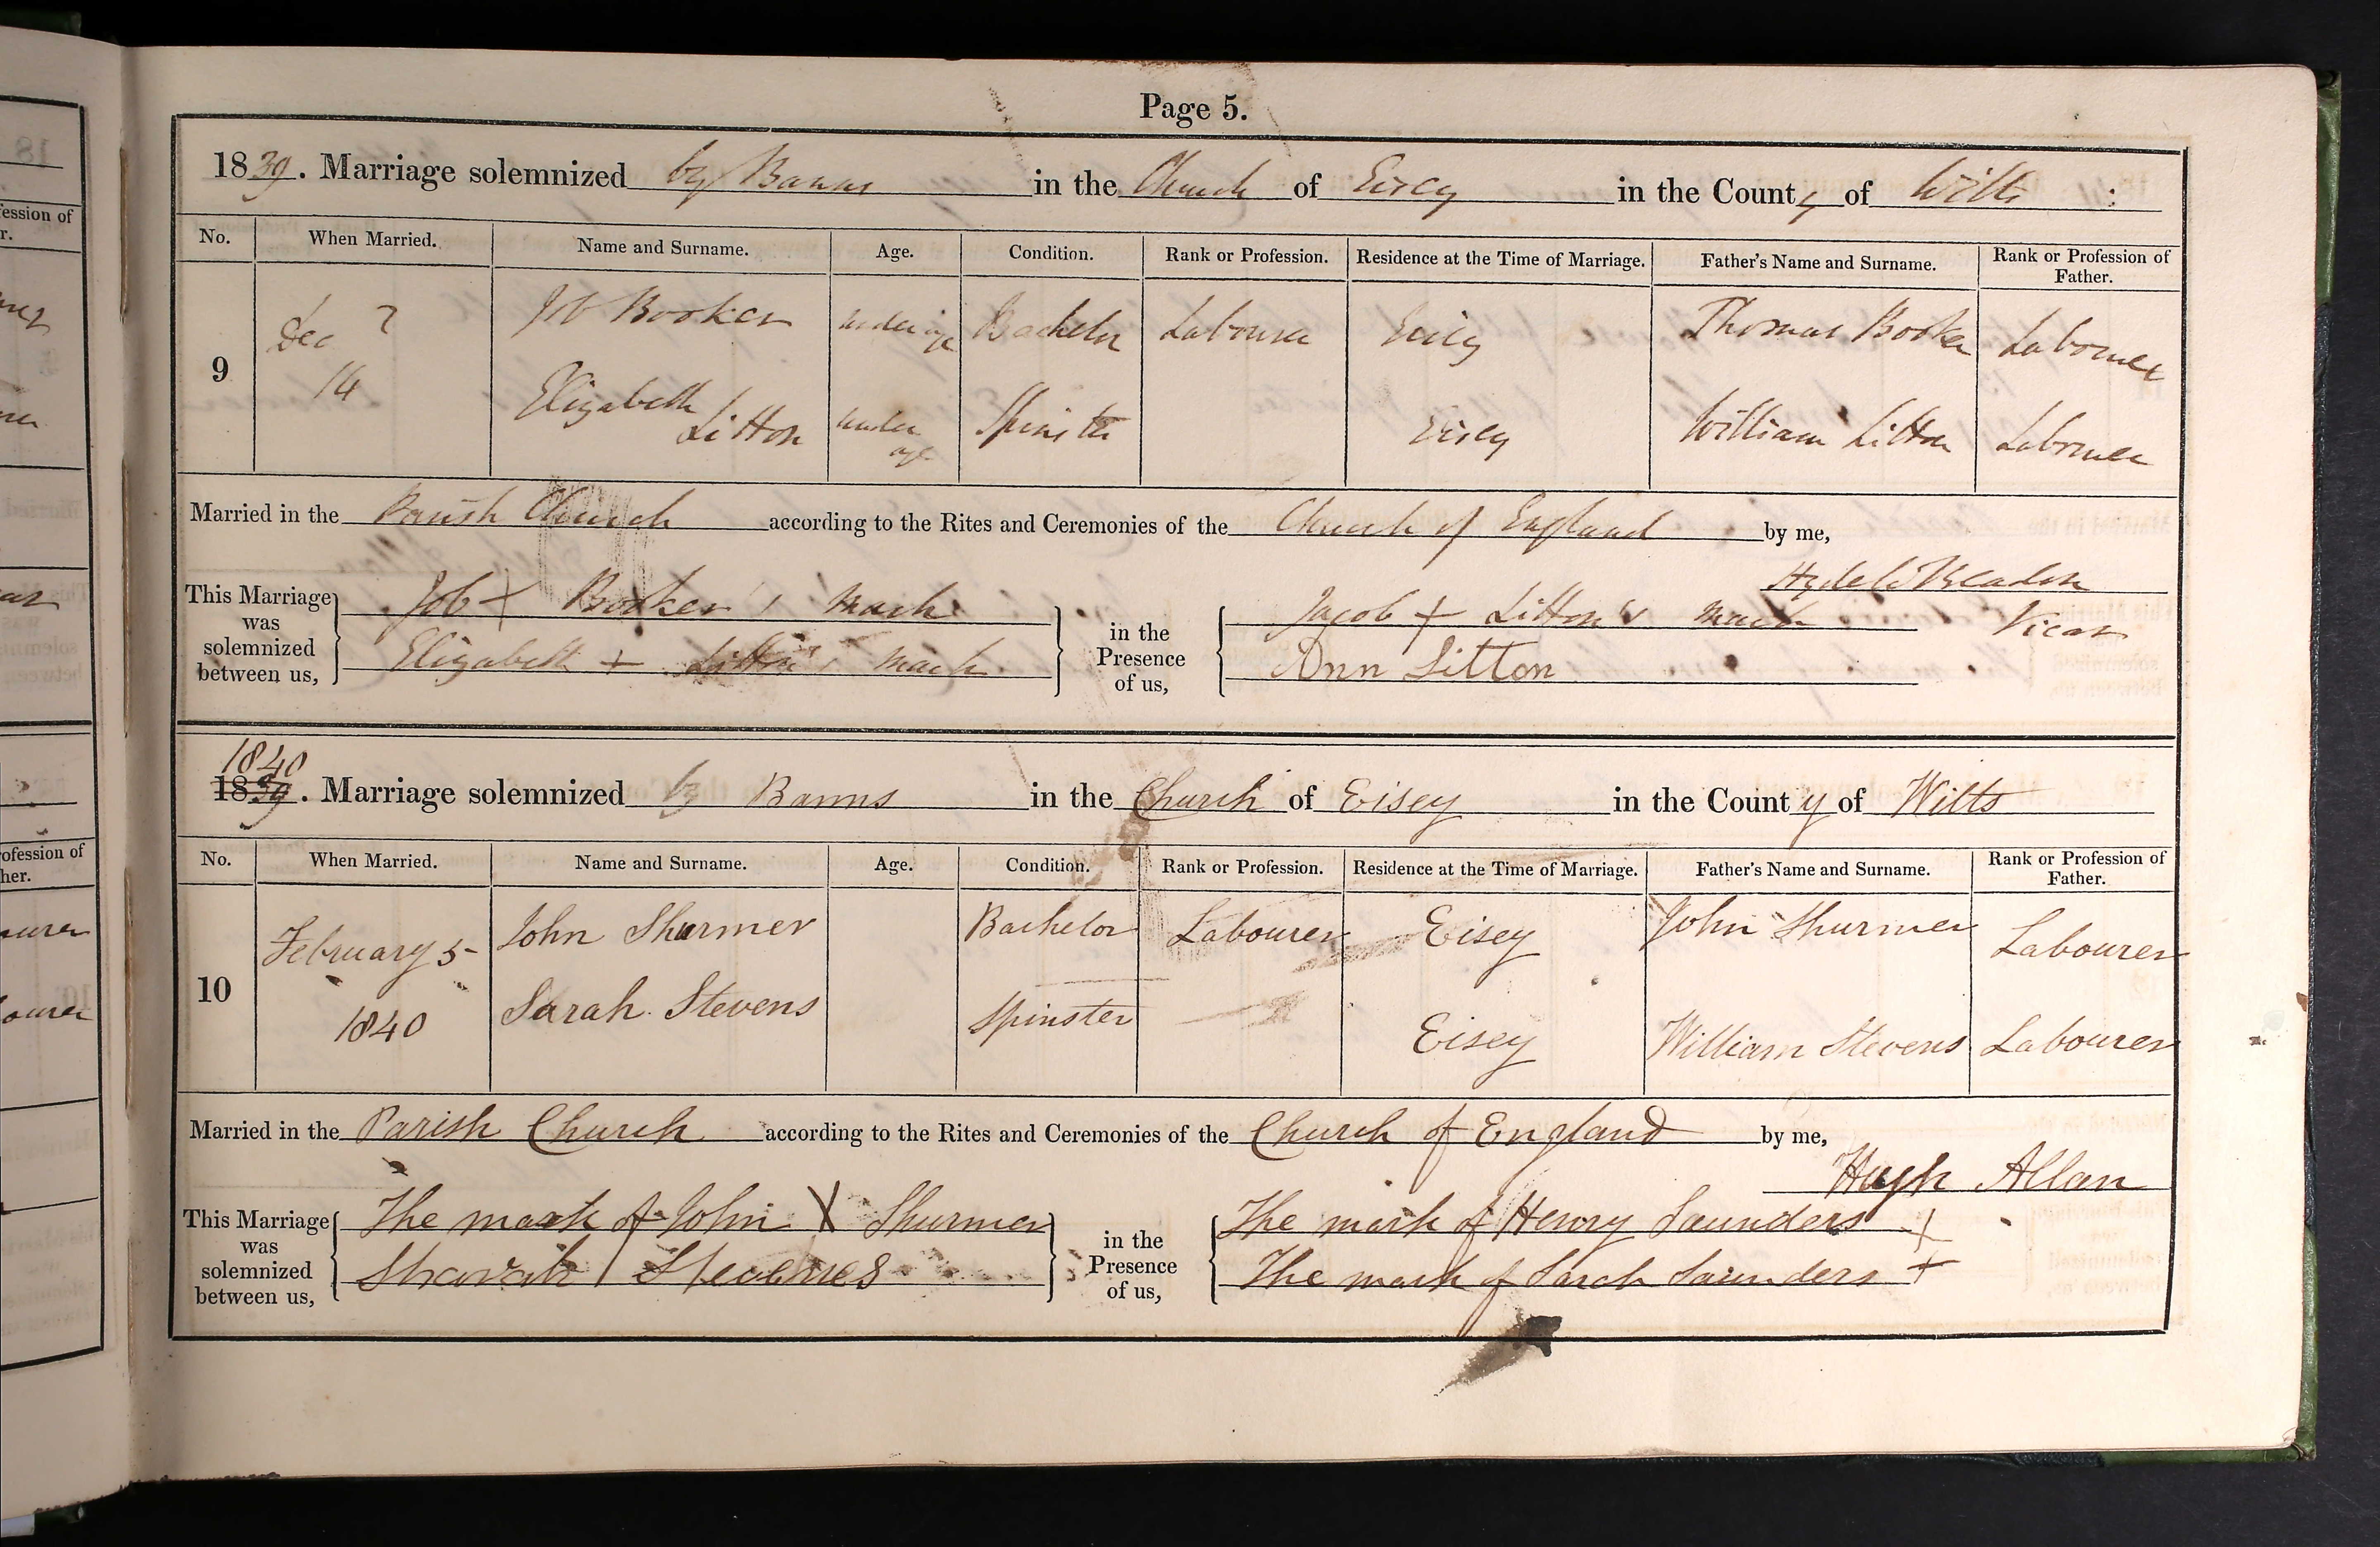 Page 5.
1839. Marriage solemnized by Banns in the Church of Eisey in the County of Wilts
No. When Married. Name and Surname. Age. Condition. Rank or Profession. Residence at the Time of Marriage. Father's Name and Surname. Rank or Profession of Father.
9 Dec 14 Job Booker under age Bachelor Labourer Eisey Thomas Booker Labourer
Elizabeth Litton under age Spinster Eisey William Litton Labourer
Married in the Parish Church according to the Rites and Ceremonies of the Church of England by me,
Vicar
This Marriage was solemnized between us, Job + Booker's mark
Elizabeth + Litton's mark
in the Presence of us, Jacob + Litton's mark
Ann Litton
1840
1839. Marriage solemnized by Banns in the Church of Eisey in the County of Wilts
No. When Married. Name and Surname. Age. Condition. Rank or Profession. Residence at the Time of Marriage. Father's Name and Surname. Rank or Profession of Father.
10 February 5 1840 John Shurmer Bachelor Labourer Eisey John Shurmer Labourer
Sarah Stevens Spinster Eisey William Stevens Labourer
Married in the Parish Church according to the Rites and Ceremonies of the Church of England by me,
Hugh Allan
This Marriage was solemnized between us, The mark of John X Shurmer
in the Presence of us, The mark of Henry Saunders +
The mark of Sarah Saunders +